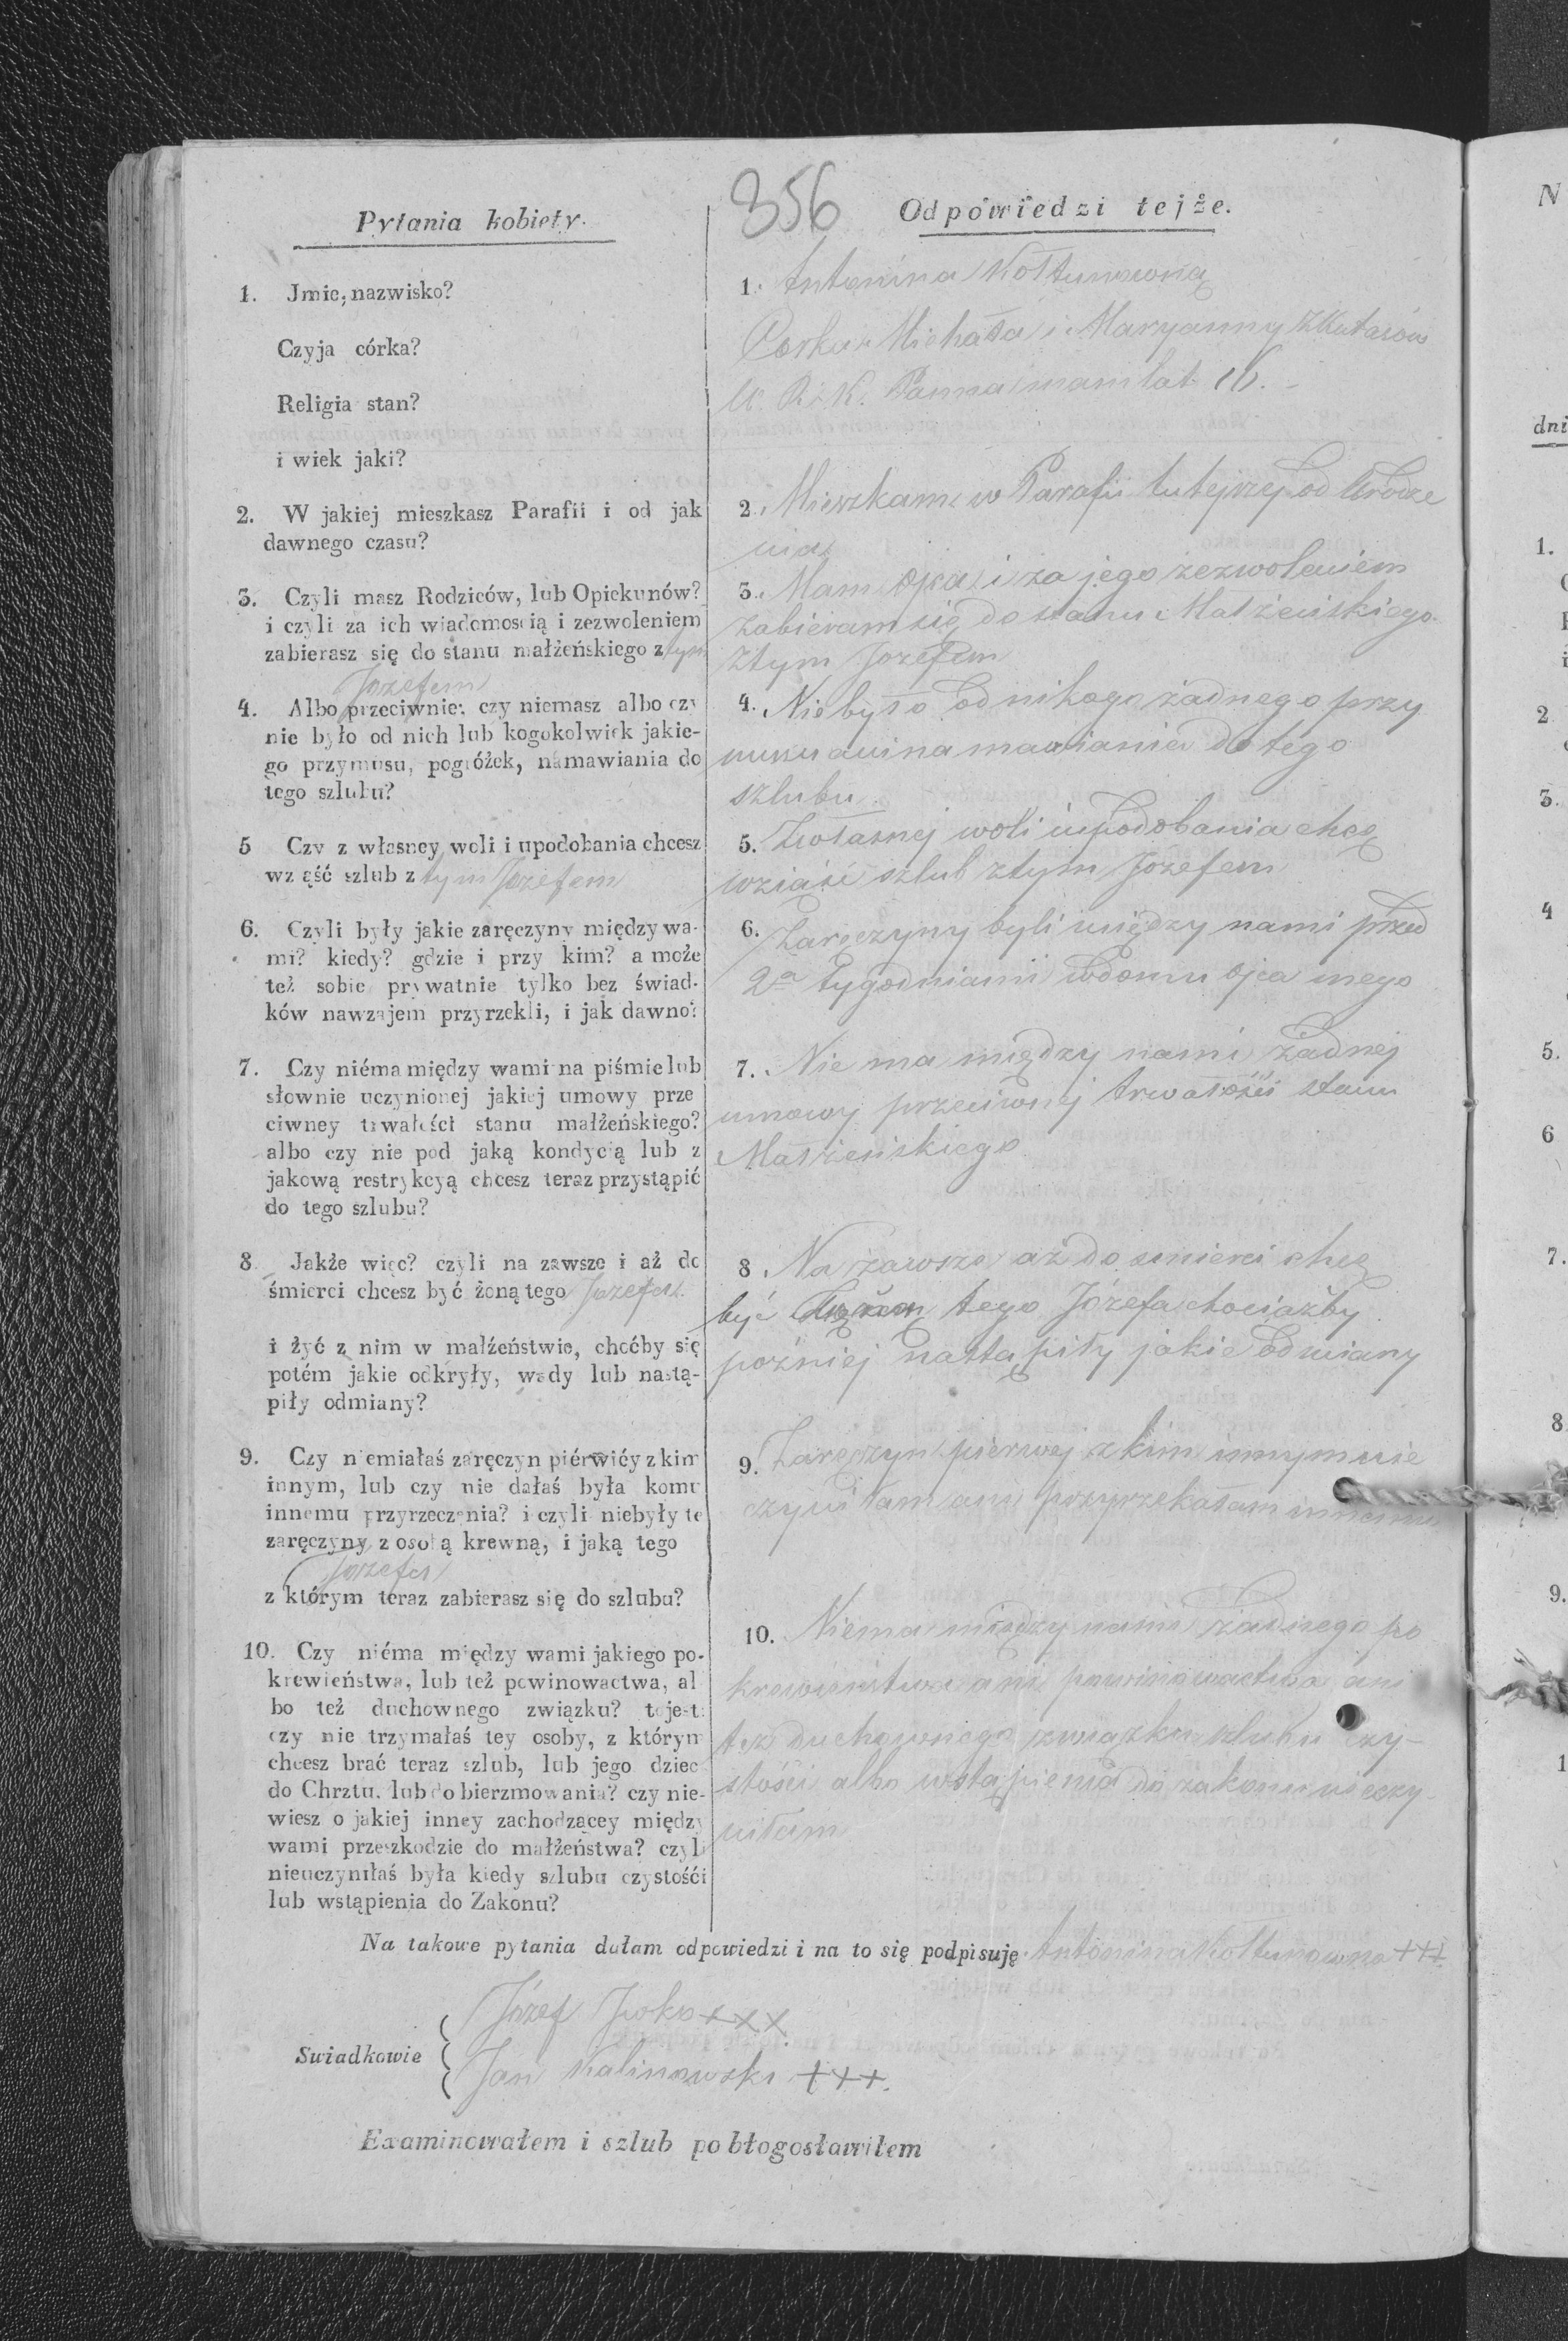 356
Pytania kobiety.
1. Jmie, nazwisko?
Czyja córka?
Religia stan?
i wiek jaki?
2. W jakiej mieszkasz Parafii i od jak
dawnego czasu?
3. Czyli masz Rodziców, lub Opiekunów?
i czyli za ich wiadomością i zezwoleniem
zabierasz się do stanu małżeńskiego z tym
Jozefem
4. Albo przeciwnie: czy niemasz albo czy
nie było od nich lub kogokolwiek jakie-
go przymusu, pogróżek, namawiania do
tego szlubu?
5 Czy z własney woli i upodobania chcesz
wziąść szlub z tym Jozefem
6. Czyli były jakie zaręczyny między wa-
mi? kiedy? gdzie i przy kim? a może
też sobie prywatnie tylko bez świad-
ków nawzajem przyrzekli, i jak dawno?
7. Czy niéma między wami na piśmie lub
słownie uczynionej jakiej umowy prze
ciwney trwałości stanu małżeńskiego?
albo czy nie pod jaką kondycią lub z
jakową restrykcyą chcesz teraz przystąpić
do tego szlubu?
8. Jakże więc? czyli na zawsze i aż do
śmierci chcesz być żoną tego Jozefa.
i żyć z nim w małżeństwie, choćby się
potém jakie odkryły, wady lub nastą-
piły odmiany?
9. Czy niemiałaś zaręczyn piérwiéy z kim
innym, lub czy nie dałaś była komu
innemu przyrzeczenia? i czyli niebyły te
zaręczyny z osobą krewną, i jaką tego
Jozefa
z którym teraz zabierasz się do szlubu?
10. Czy niéma między wami jakiego po-
krewieństwa, lub też powinowactwa, al
bo też duchownego związku? to jest:
czy nie trzymałaś tey osoby, z którym
chcesz brać teraz szlub, lub jego dzieci
do Chrztu, lub do bierzmowania? czy nie-
wiesz o jakiej inney zachodzącey między
wami przeszkodzie do małżeństwa? czyli
nieuczyniłaś była kiedy szlubu czystośći
lub wstąpienia do Zakonu?
Odpowiedzi tejże.
1. Antonina Kołtunowna
Corka Michała i Maryanny z Kutasów
W. R. K. Panna mam lat 16.
2. Mieszkam w Parafii tutejszej od Urodze
nia
3. Mam Ojca i za jego zezwoleniem
zabieram się do stanu Małżeńskiego
z tym Jozefem
4. Niebyło od nikogo żadnego przy
musu ani namawiania do tego
szlubu.
5. Z własnej woli i upodobania chcę
wziąść szlub z tym Jozefem
6. Zaręczyny byli między nami przed
2a tygodniami w domu ojca mego
7. Nie ma między nami żadnej
umowy przeciwnej trwałości stanu
Małżeńskiego
8 Na zawsze aż do smierci chcę
być tego Józefa chociażby
pożniej nastąpiły jakie odmiany
9. Zaręczyn pierwej z kim innym nie
czyniłam ani przyrzekałam innemu
10. Niema między nami żadnego po
krewieństwa ani powinowactwa ani
też duchownego związku szlubu czy-
stości albo wstąpienia do zakonu nieczy-
niłam
Na takowe pytania dałam odpowiedzi i na to się podpisuję Antonina Kołtunowna +++
Swiadkowie
Józef xxx
Jan Kalinowski +++.
Examinowałem i szlub pobłogosławiłem
N
dni
1.
2
3.
4
5.
6
7.
8
9.
1